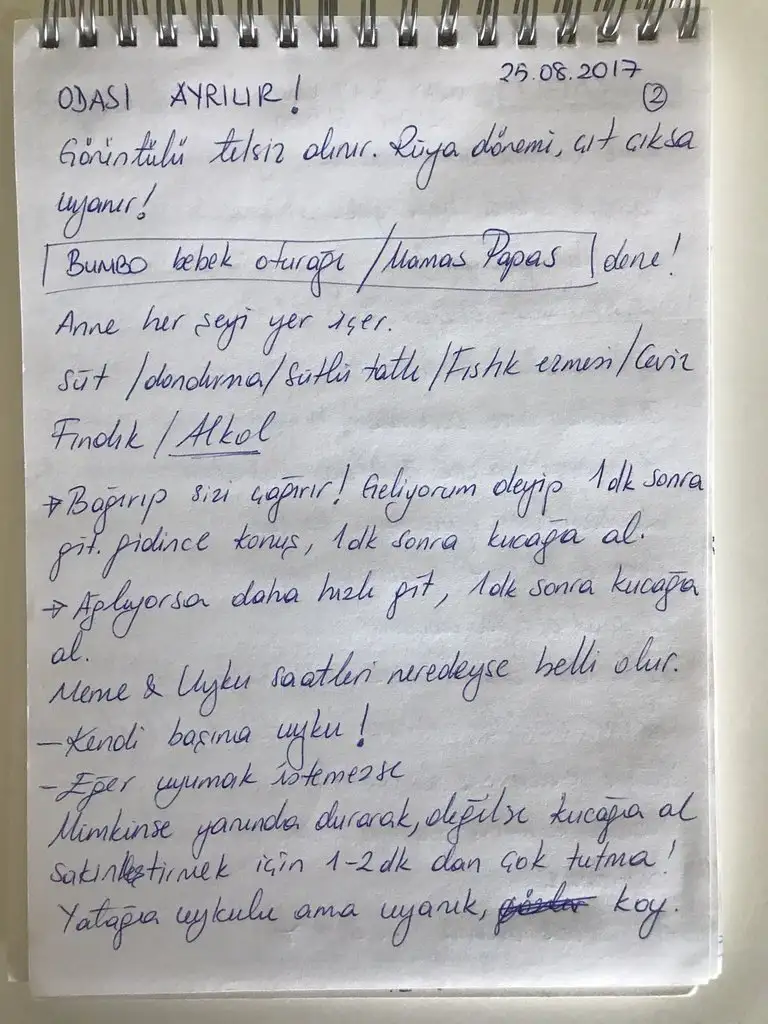 25.08.2017
ODASI AYRILIR! 2
Görüntülü telsiz alınır. Rüya dönemi, çıt çıksa
uyanır!
BUMBO bebek oturağı / Mamas Papas dene!
Anne her şeyi yer içer.
Süt / dondurma / Sütlü tatlı / Fıstık ezmesi / Ceviz
Fındık / Alkol
→ Bağırıp sizi çağırır! Geliyorum deyip 1dk sonra
git. gidince konuş, 1dk sonra kucağa al.
→ Ağlıyorsa daha hızlı git, 1dk sonra kucağa
al.
Meme & Uyku saatleri neredeyse belli olur.
- Kendi başına uyku!
- Eğer uyumak istemezse
Mümkünse yanında durarak, değilse kucağa al
sakinleştirmek için 1-2dk dan çok tutma!
Yatağa uykulu ama uyanık, koy.